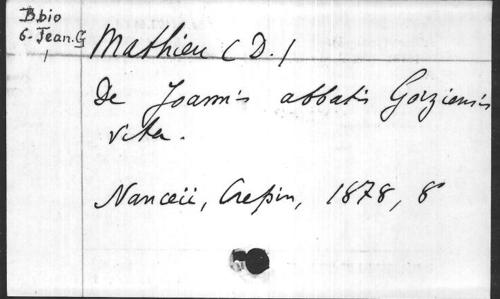 B.bio
6. Jean.G
1
Mathieu (D.)
De Joannis abbatis Gorziensis
vita.
Nanceii, Crepin, 1878, 8°